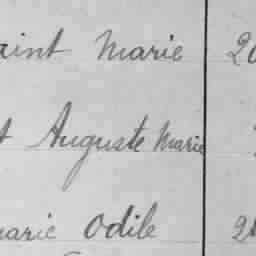 aint Marie 20
t Auguste Marie
marie Odile 2